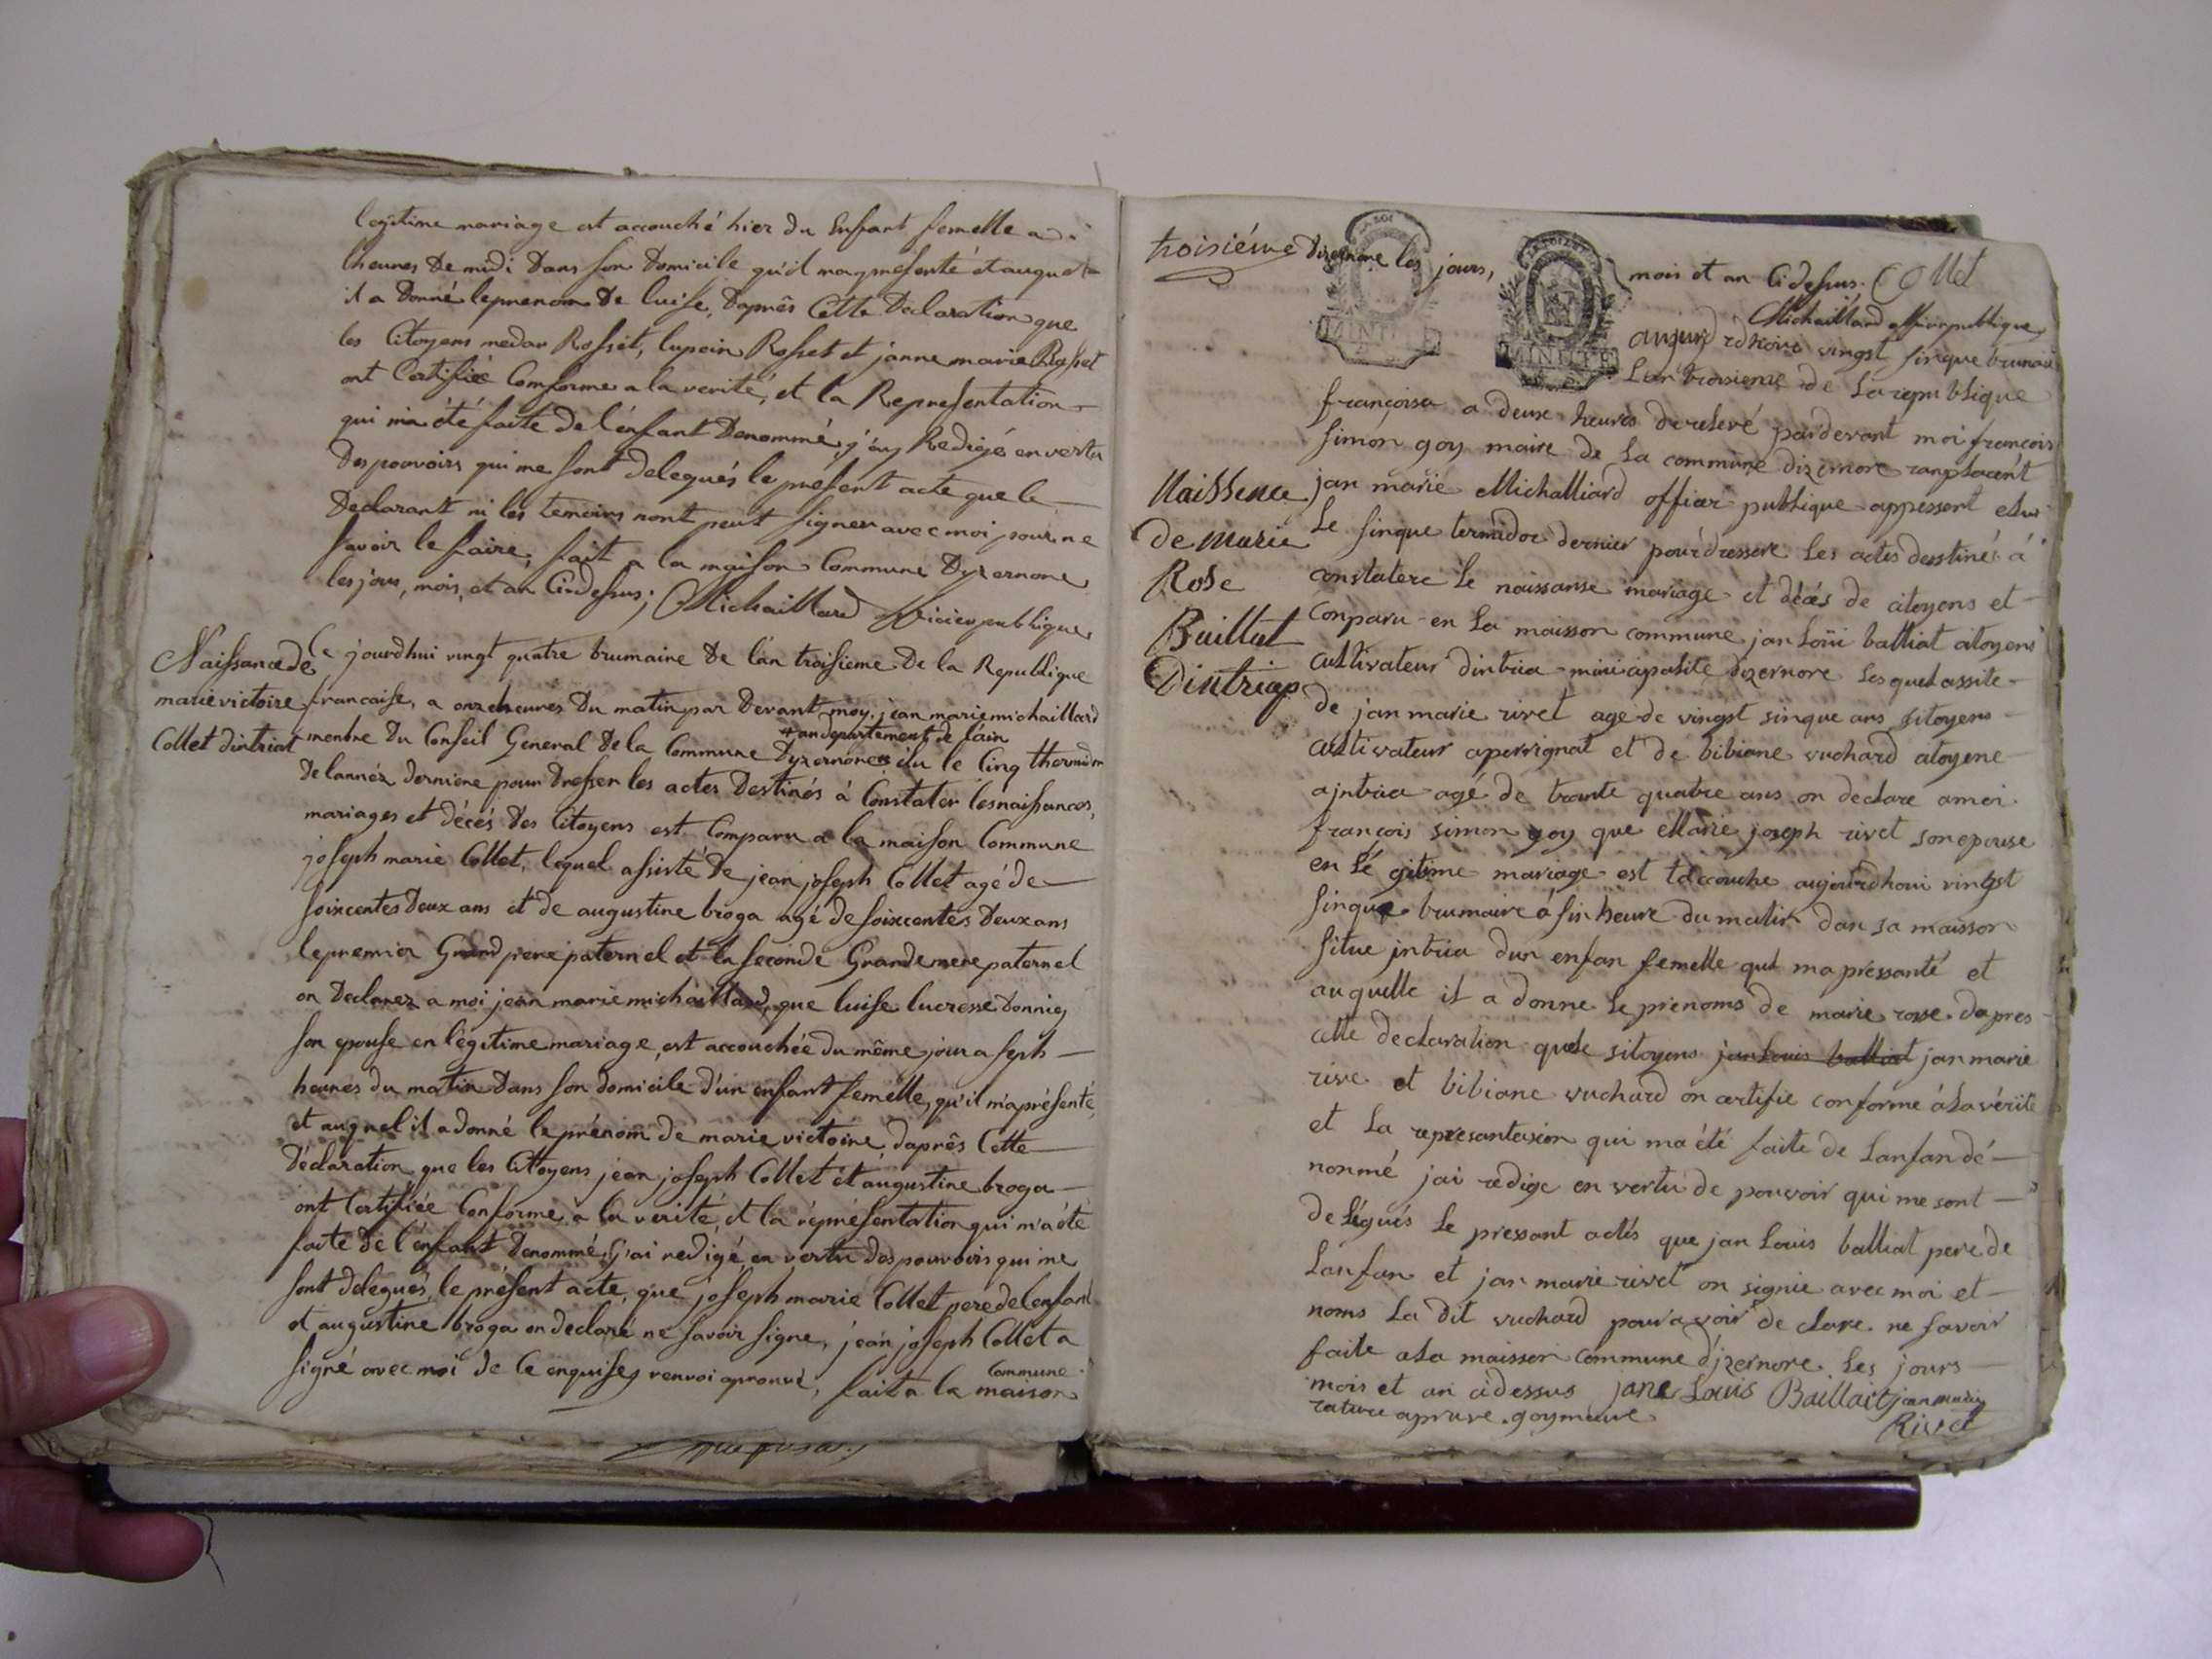 legitime mariage est accouché hier du Enfant femelle a
heures de midi dans son domicile qu'il may presenté et auquel
il a donné leprenom de luise, daprês Cette Declaration que
les Citoyens medar Rosset, lupein Rosset et janne marie Rosset
ont Certifiée Comforme a la verité, et la Representation
qui m'a été faite de l'énfant Denommé, j'ay Redigé en vertu
des pouvoirs qui me sont delegués le présent acte que le
Declarant ni les temoins nont peut signer avec moi pour ne
savoir le faire, fait a la maison Commune Dyzernone
les jour, mois, et an Cy dessus; Michaillard officier publique
Naissance de
marie victoire
Collet dintriat
Ce jourdhui vingt quatre brumaine de l'an troisieme de la Republique
francaise, a onze heures du matin par devant moy, jean marie michaillard
+ an departement de lain
menbre du Conseil General de la Commune Dyzernone élu le Cinq thermidor
de lannéz derniere pour dresser les actes Destinés à Constater les naissances,
mariages et décés des Citoyens est Comparu a la maison Commune
joseph marie Collet, lequel assisté de jean joseph Collet agé de
soixcentes deux ans et de augustine broga agé de soixcentes deux ans
lepremier Grand pere paternel et la seconde Grande mere paternel
on Declarez a moi jean marie michaillard, que luise lucresse donnieg
son epouse en légitime mariage, est accouchée du même jour a seph
heures du matin dans son domicile d'un enfant femélle, qu'il m'a présenté,
et auquel il a donné le prénom de marie victoire, daprês Cette
déclaration que les Citoyens jean joseph Collet et augustine broga
ont Certifiée Conforme a la verité, et la réprésentation qui m'a été
faite de l'énfant denommé, j'ai redigé en vertu des pouvoirs qui me
sont delegués, le présent acte, que joseph marie Collet pere de lenfant
et augustine broga on declaré ne savoir signe, jean joseph Collet a
signé avec moi de Ce enquises renvoi aprouvé, fait a la maison
Commune
troisiéme
Dizernone les jours,
mois et an Cidessus. Collet
Michaillard officier publique
MINUTE
MINUTE
aujourdhoui vingst sinque brumair
Lan troisieme de La republique
françoisa a deux heures de relevé pardevant moi françois
simon goy maire de La commune dizernore ranplacent
Naissence
de marie
Rose
Baillat
Dintriap
jan marie Michalliard officier publique appessent elu
Le sinque termidor dernier pour dressere Les actes destiné à
constatere Le naissanse mariage et décés de citoyens et
conparu en La maisson commune jan Loüi balliat citoyens
cultivateur dintria minicipalite dizernore Lesquel assite
de jan marie rivet age de vingst sinque ans sitoyens
cultivateur aperrignat et de bibiane vuchard citoyene
ajntria agé de trante quatre ans on declare a moi
françois simon goy que Marie joseph rivet son epouse
en Lé gitime mariage est taccouche aujourdhoui vingst
sinque brumaire á sis heure du matin dan sa maisson
situe jntria dun enfan femelle quil ma pressanté et
auquelle il a donne Le prenoms de marie rose. dapres
cette declaration quele sitoyens jan Louis balliat jan marie
rive et bibiane vuchard on certifie conforme á La vérite
et La represantasion qui ma été faite de Lanfan dé
nonmé jai redige en vertu de pouvoir qui me sont
de Légués Le pressant actés que jan Louis balliat pere de
Lanfan et jan marie rivet on signie avec moi et
noms La dit vuchard pour avoir de clare ne savoir
faite a La maisson commune djzernore. Les jours
mois et an cidessus jane Louis Baillait jean marie
Rivet
rature apruve. goy maire